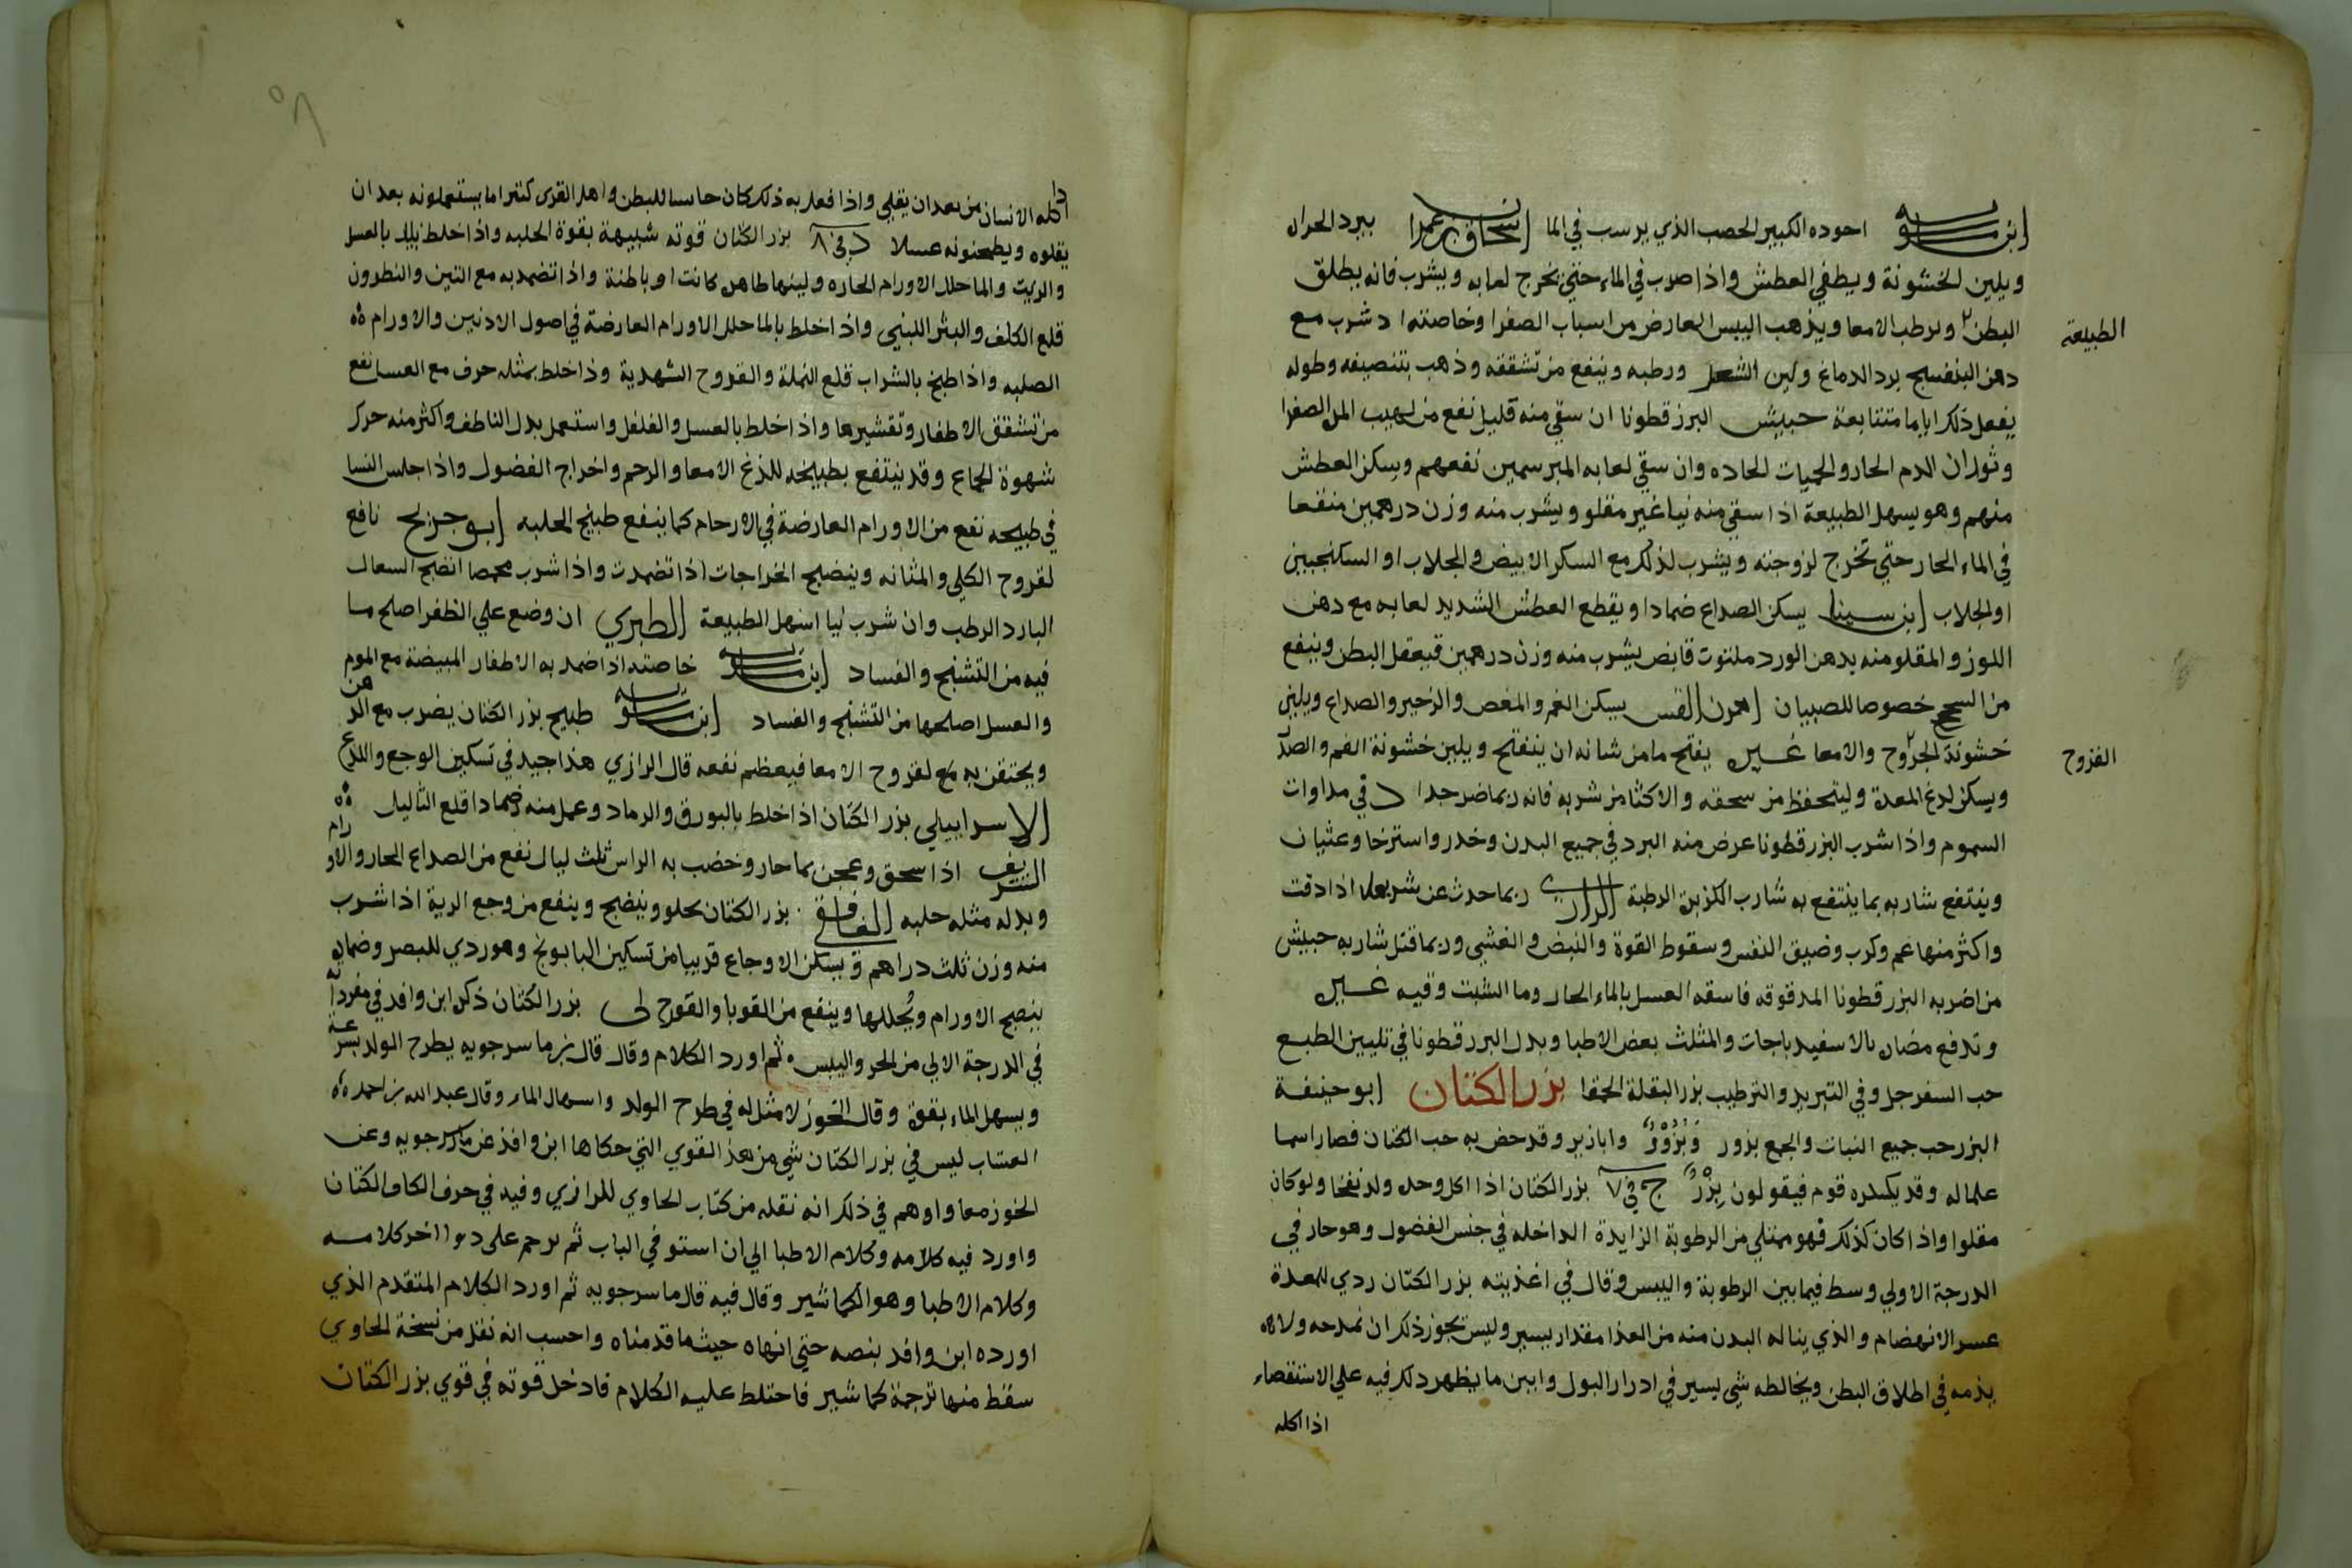 ابن ماسويه اجوده الكبير الخصب الذي يرسب في الما اسحاق بن عمران يبرد الحراره
ويلين الخشونة ويطفي العطش واذا ضرب في الماء حتي يخرج لعابه ويشرب فانه يطلق
البطن ويرطب الامعا ويذهب اليبس العارض من اسباب الصفرا وخاصته اذ شرب مع
الطبيعة
دهن البنفسج برد الدماغ ولين الشعر ورطبه وينفع من تشققه وذهب بتنصيفه وطوله
يفعل ذلك اياما متتابعة حبيش البزرقطونا ان سقي منه قليل نفع من لهيب المره الصفرا
وثوران الدم الحار والحميات الحاده وان سقي لعابه المبرسمين نفعهم وسكن العطش
منهم وهو يسهل الطبيعة اذا سقي منه نيا غير مقلو ويشرب منه وزن درهمين منقعا
في الماء الحار حتي تخرج لزوجته ويشرب لذلك مع السكر الابيض والجلاب او السكنجبين
او الجلاب ابن سينا يسكن الصداع ضمادا ويقطع العطش الشديد لعابه مع دهن
اللوز والمقلو منه بدهن الورد ملتوت قابض يشرب منه وزن درهمين فيعقل البطن وينفع
من السحج خصوصا للصبيان اهرن القس يسكن الغم والمغص والزحير والصداع ويلين
خشونة الجروح والامعا غيره يفتح ما من شانه ان ينفتح ويلين خشونة الفم والصدر
القروح
ويسكن لدغ المعدة وليتحفظ من سحقه والاكثار من شربه فانه ربما ضر جدا د في مداوات
السموم واذا شرب البزرقطونا عرض منه البرد في جميع البدن وخدر واسترخا وغثيان
وينتفع شاربه بما ينتفع به شارب الكزبرة الرطبة الرازي ربما حدث عن شربها اذا دقت
واكثر منها غم وكرب وضيق النفس وسقوط القوة والنبض والغشي وربما قتل شاربه حبيش
من اضر به البزرقطونا المدقوقه فاسقه العسل بالماء الحار وما الشبت وقيه غيره
وتدفع مضاره بالاسفيدباجات والمثلث بعض الاطبا وبدل البزرقطونا في تليين الطبع
حب السفرجل وفي التبريد والترطيب بزر البقلة الحمقا بزر الكتان ابو حنيفة
البزر حب جميع النبات والجمع بزور وَبُزُورٌ وابازير وقد خص به حب الكتان فصار اسما
علما له وقد يكسره قوم فيقولون بِزْرٌ ج في ٧ بزر الكتان اذا اكل وحده ولد نفخا ولو كان
مقلوا واذا كان كذلك فهو ممتلي من الرطوبة الزايدة الداخله في جنس الفضول وهو حار في
الدرجة الاولي وسط فيما بين الرطوبة واليبس وقال في اغذيته بزر الكتان ردي للمعدة
عسر الانهضام والذي يناله البدن منه من الغذا مقدار يسير وليس يجوز ذلك ان نمدحه ولا
يذمه في اطلاق البطن ويخالطه شي يسير في ادرار البول وابين ما يظهر دلك فيه علي الاستقصاء
اذا اكله
اذا اكله الانسان من بعد ان يقلي واذا فعل به ذلك كان حابسا للبطن واهل القرى كثيرا ما يستعملونه بعد ان
يقلوه ويطحنونه عسلا د في ٨ بزر الكتان قوته شبيهة بقوة الحلبه واذا خلط بالعسل
والزيت والما حلل الاورام الحاره ولينها ظاهره كانت او باطنة واذا تضمد به مع التين والنطرون
قلع الكلف والبثر اللبني واذا خلط بالما حلل الاورام العارضة في اصول الاذنين والاورام
الصلبه واذا طبخ بالشراب قلع النملة والقروح الشهدية وذا خلط بمثله حرف مع العسل نفع
من تشقق الاظفار وتقشيرها واذا خلط بالعسل والفلفل واستعمل بدل الناطف واكثر منه حرك
شهوة الجماع وقد ينتفع بطبيخه للذغ الامعا والرحم واخراج الفضول واذا جلس النسا
في طبيخه نفع من الاورام العارضة في الارحام كما ينفع طبيخ الحلبه ابو جريج نافع
لقروح الكلي والمثانه وينضج الخراجات اذا تضمدت واذا شرب محمصا انضج السعال
البارد الرطب وان شرب نيا اسهل الطبيعة الطبري ان وضع علي الظفر اصلح ما
فيه من التشنج والفساد ابن ماسويه خاصته اذا ضمد به الاظفار المبيضة مع الموم
والعسل اصلحها من التشنج والفساد ابن ماسويه طبيخ بزر الكتان يضرب مع الدهن
ويحتقن به مع لقروح الامعا فيعظم نفعه قال الرازي هذا جيد في تسكين الوجع واللذع
الاسراييلي بزر الكتان اذا اخلط بالبورق والرماد وعمل منه ضمادا قلع الثاليل
الشريف اذا سحق وعجن بما حار وخضب به الراس ثلث ليال نفع من الصداع الحار والاورام
وبدله مثله حلبه الغافقي بزر الكتان يحلو وينضج وينفع من وجع الرية اذا شرب
منه وزن ثلث دراهم ويسكن الاوجاع قريبا من تسكين البابونج وهو ردي للبصر وضماده
ينضج الاورام ويحللها وينفع من القوبا والقروح لى بزر الكتان ذكر ابن وافد في مفرداته
في الدرجة الاولي من الحر واليبس ثم اورد الكلام وقال قال بن ما سرجويه يطرح الولد بسرعة
ويسهل الماء بقوة وقال الخوز لا مثل له في طرح الولد واسهال الماء وقال عبد الله بن احمد
العشاب ليس في بزر الكتان شي من هذه القوي التي حكاها ابن وافد عن ماسرجويه وعن
الخوز معا واوهم في ذلك انه نقله من كتاب الحاوي للرازي وفيه في حرف الكاف الكتان
واورد فيه كلامه وكلام الاطبا الي ان استوفي الباب ثم ترجم على دوا اخر كلامه
وكلام الاطبا وهو الكماشير وقال فيه قال ما سرجويه ثم اورد الكلام المتقدم الذي
اورده ابن وافد بنصه حتي انهاه حيث ما قدمناه واحسب انه نقل من نسخة الحاوي
سقط منها ترجمة كماشير فاختلط عليه الكلام فادخل قوته في قوي بزر الكتان